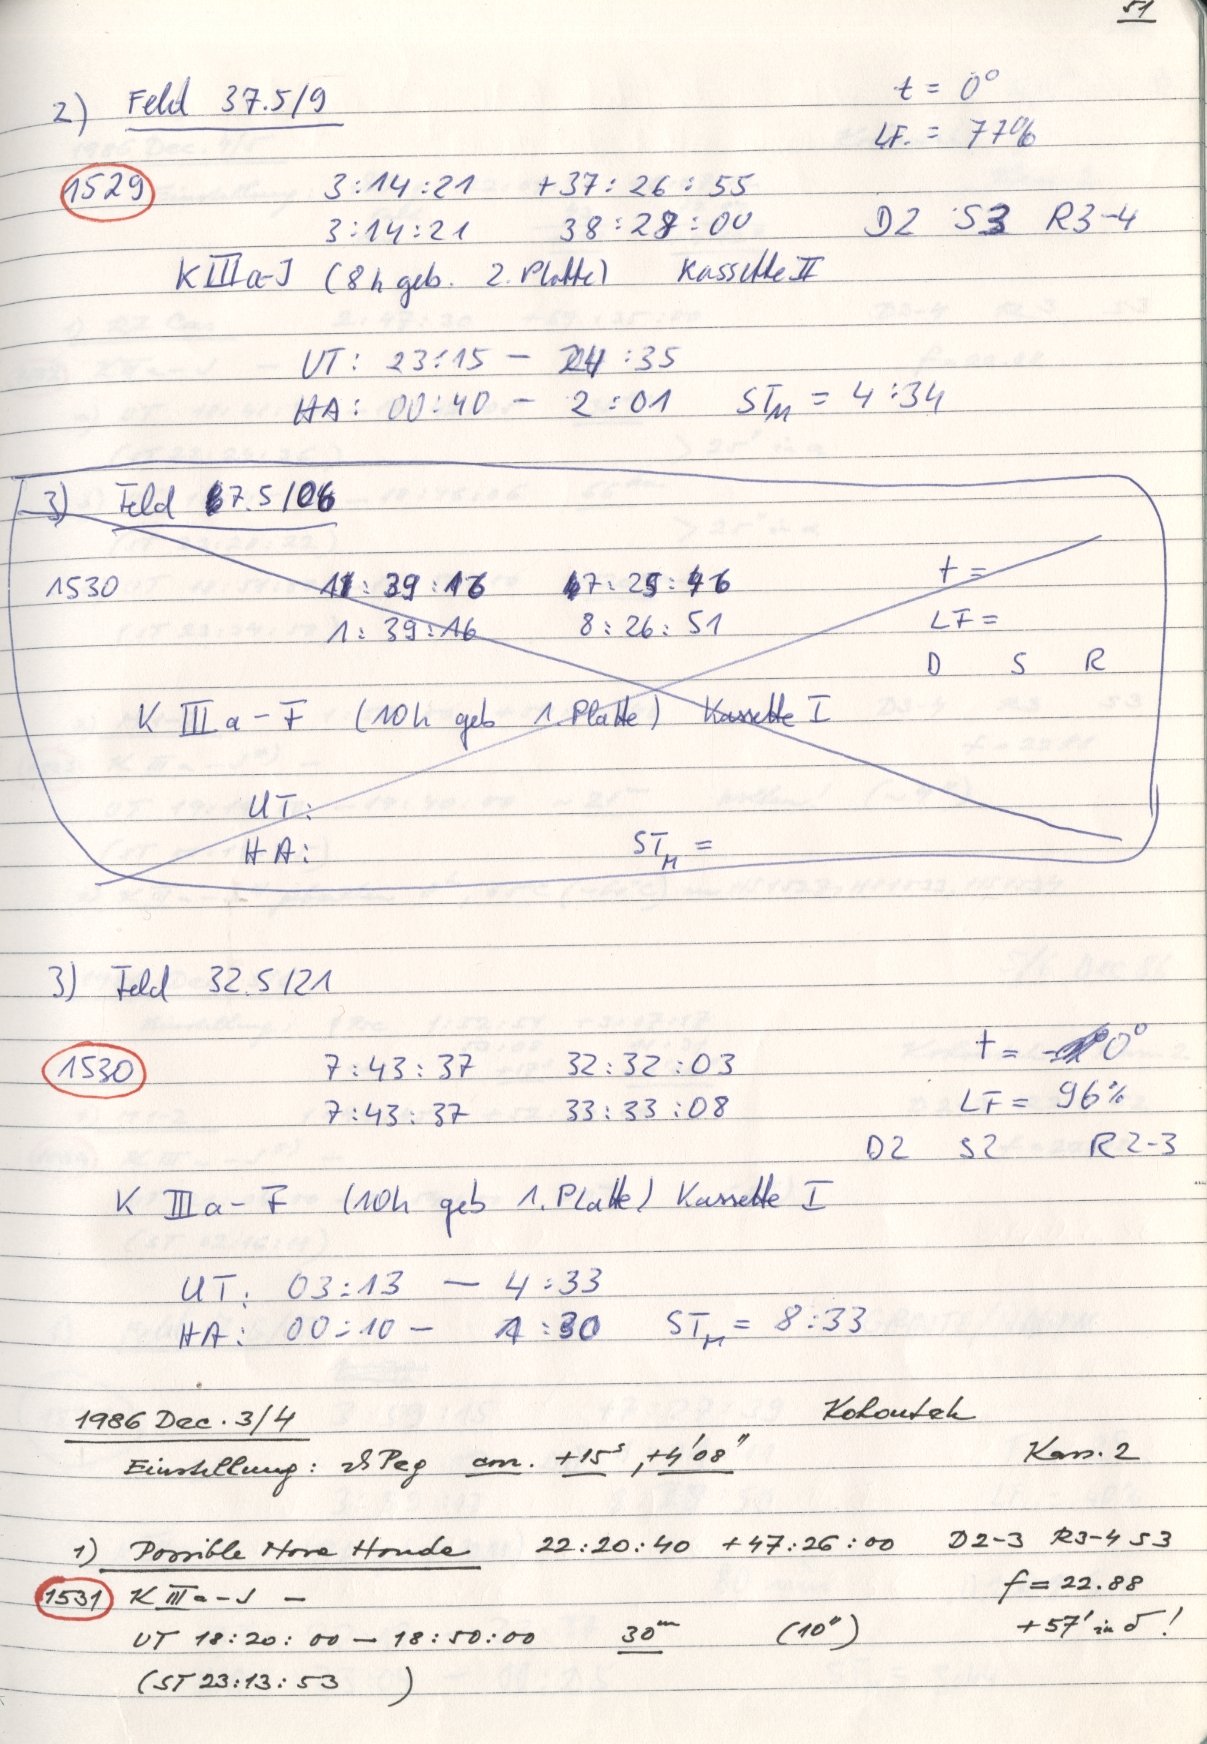 51
2) Feld 37.5/9 t = 0°
LF. = 77%
1529 3:14:21 +37:26:55
3:14:21 38:28:00 D2 S3 R3-4
K IIIa-J (8h geb. 2. Platte) Kassette II
UT: 23:15 - 24:35
HA: 00:40 - 2:01 STM = 4:34
3) Feld 67.5/06
1530 1:39:16 47:25:46 t =
1:39:16 8:26:51 LF =
D S R
K IIIa-F (10h geb 1. Platte) Kassette I
UT:
HA: STM =
3) Feld 32.5/21
1530 7:43:37 32:32:03 t = 0°
7:43:37 33:33:08 LF = 96%
D2 S2 R2-3
K IIIa-F (10h geb 1. Platte) Kassette I
UT: 03:13 - 4:33
HA: 00:10 - 1:30 STM = 8:33
1986 Dec. 3/4 Kohoutek
Einstellung: ϑ Peg corr. +15s, +4'08" Kass. 2
1) Possible Nova Honda 22:20:40 +47:26:00 D2-3 R3-4 S3
1531 K IIIa-J - f = 22.88
UT 18:20:00 - 18:50:00 30m (10") +57' in δ!
(ST 23:13:53 )